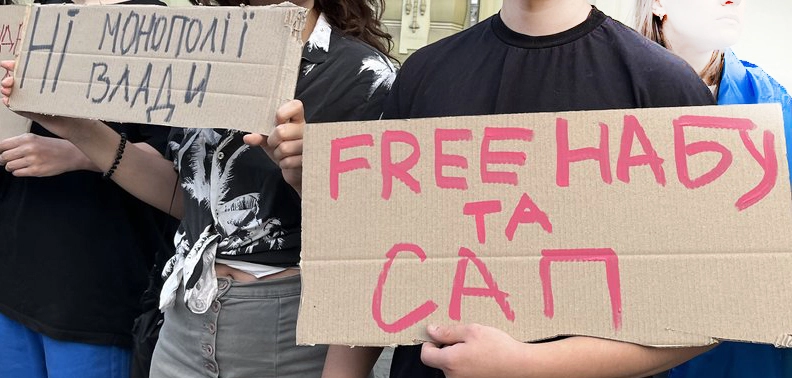 НІ МОНОПОЛІЇ
ВЛАДИ
FREE НАБУ
ТА
САП